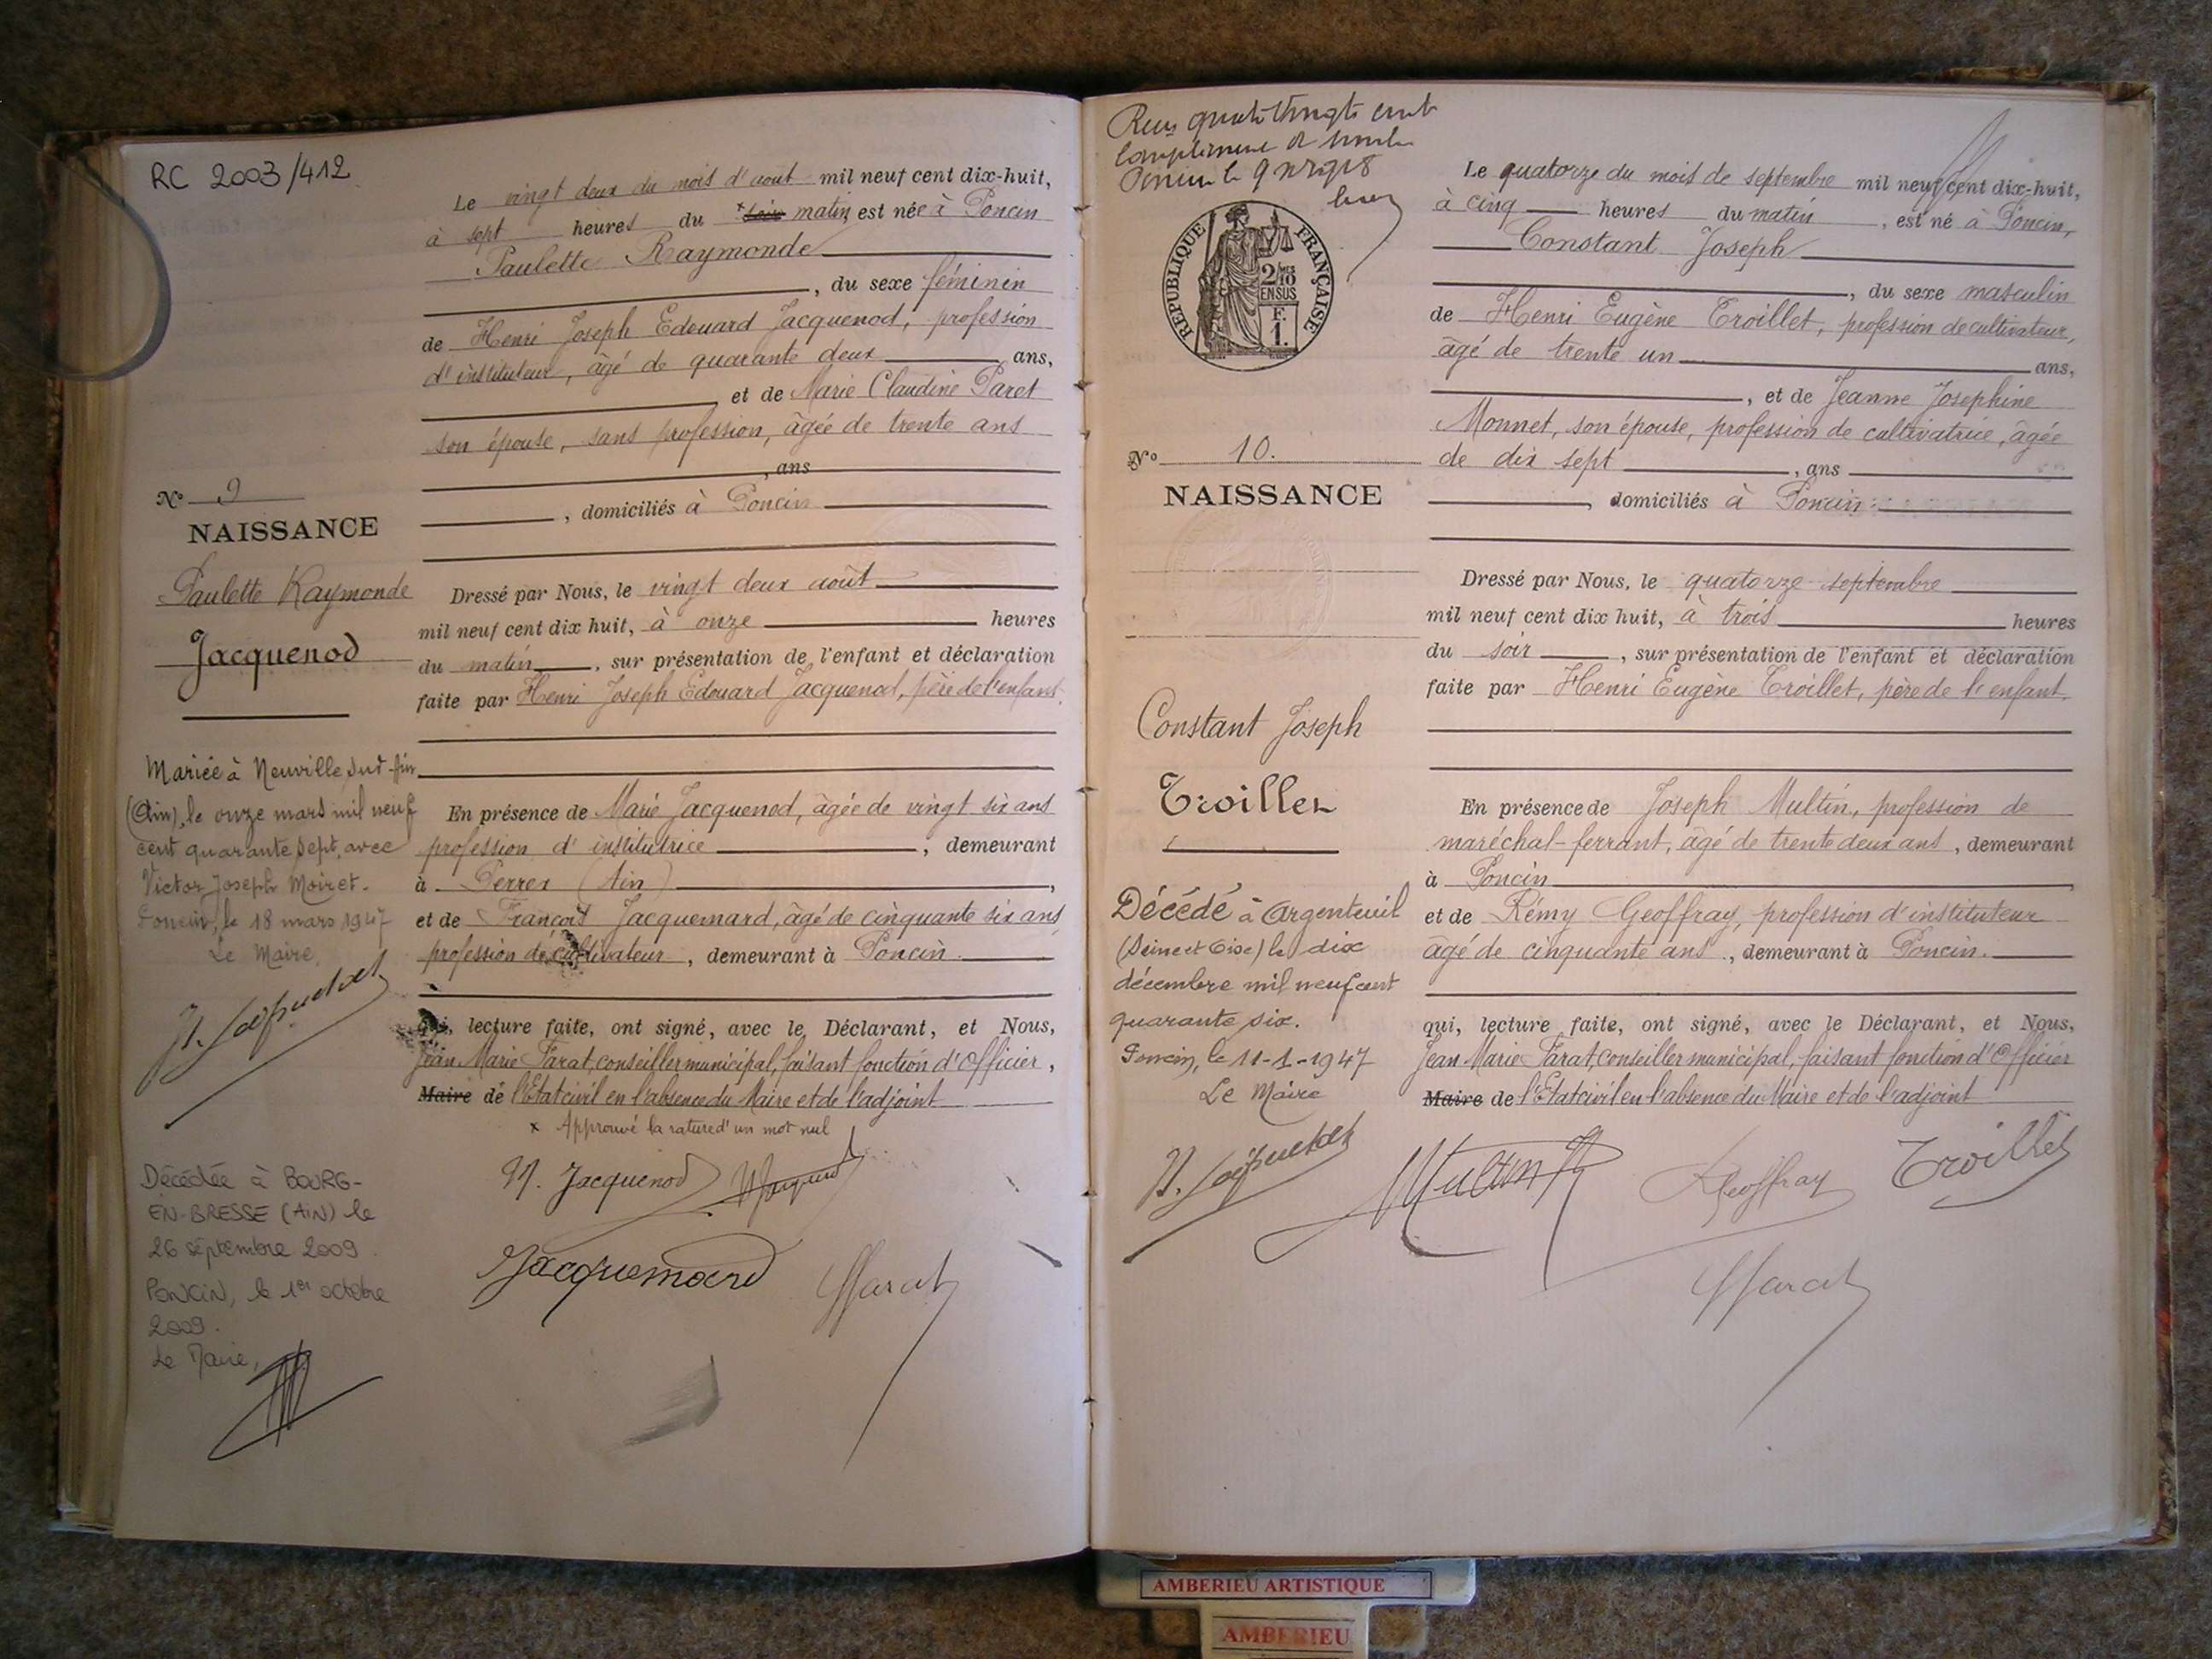 RC 2003/412
Le vingt deux du mois d'août mil neuf cent dix-huit,
à sept heures du × soir matin est née à Poncin
Paulette Raymonde
, du sexe féminin
de Henri Joseph Edouard Jacquenod, profession
d'instituteur, âgé de quarante deux ans,
et de Marie Claudine Paret
son épouse, sans profession, âgée de trente ans
, ans
, domiciliés à Poncin
N° 9
NAISSANCE
Paulette Raymonde
Jacquenod
Dressé par Nous, le vingt deux août
mil neuf cent dix huit, à onze heures
du matin, sur présentation de l'enfant et déclaration
faite par Henri Joseph Edouard Jacquenod, père de l'enfant.
Mariée à Neuville sur Ain
(Ain), le onze mars mil neuf
cent quarante sept, avec
Victor Joseph Moiret.
Poncin, le 18 mars 1947
Le Maire,
En présence de Marie Jacquenod, âgée de vingt six ans
profession d'institutrice, demeurant
à (Ain),
et de François Jacquemard, âgé de cinquante six ans,
profession de cultivateur, demeurant à Poncin.
qui, lecture faite, ont signé, avec le Déclarant, et Nous,
Jean Marie Farat, conseiller municipal, faisant fonction d'Officier,
Maire de l'Etat civil en l'absence du Maire et de l'adjoint
× Approuvé la rature d'un mot nul
H. Jacquenod
Jacquemard
Farat
Décédée à BOURG-
EN-BRESSE (AIN) le
26 septembre 2009.
PONCIN, le 1er octobre
2009.
Le Maire,
Poncin le 9
REPUBLIQUE FRANÇAISE
2/10 MES
EN SUS
F.
1.
Le quatorze du mois de septembre mil neuf cent dix-huit,
à cinq heures du matin, est né à Poncin,
Constant Joseph
, du sexe masculin
de Henri Eugène Troillet, profession de cultivateur,
âgé de trente un ans,
, et de Jeanne Josephine
Monnet, son épouse, profession de cultivatrice, âgée
de dix sept, ans
, domiciliés à Poncin.
N° 10.
NAISSANCE
Constant Joseph
Troillet
Dressé par Nous, le quatorze septembre
mil neuf cent dix huit, à trois heures
du soir, sur présentation de l'enfant et déclaration
faite par Henri Eugène Troillet, père de l'enfant.
Décédé à Argenteuil
(Seine et Oise) le dix
décembre mil neuf cent
quarante six.
Poncin, le 11-1-1947
Le Maire
En présence de Joseph Multin, profession de
maréchal-ferrant, âgé de trente deux ans, demeurant
à Poncin,
et de Rémy Geoffray, profession d'instituteur
âgé de cinquante ans, demeurant à Poncin.
qui, lecture faite, ont signé, avec le Déclarant, et Nous,
Jean Marie Farat, conseiller municipal, faisant fonction d'Officier
Maire de l'Etat civil en l'absence du Maire et de l'adjoint
Multin
Geoffray
Troillet
Farat
AMBERIEU ARTISTIQUE
AMBERIEU